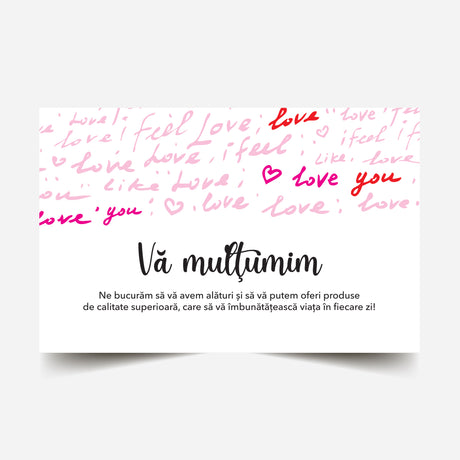 Love! love
love! I feel Love, love i feel i f
love Love, i feel! Like, love
Like Love, love you
love you love love! love
Vă mulţumim
Ne bucurăm să vă avem alături și să vă putem oferi produse
de calitate superioară, care să vă îmbunătățească viața în fiecare zi!